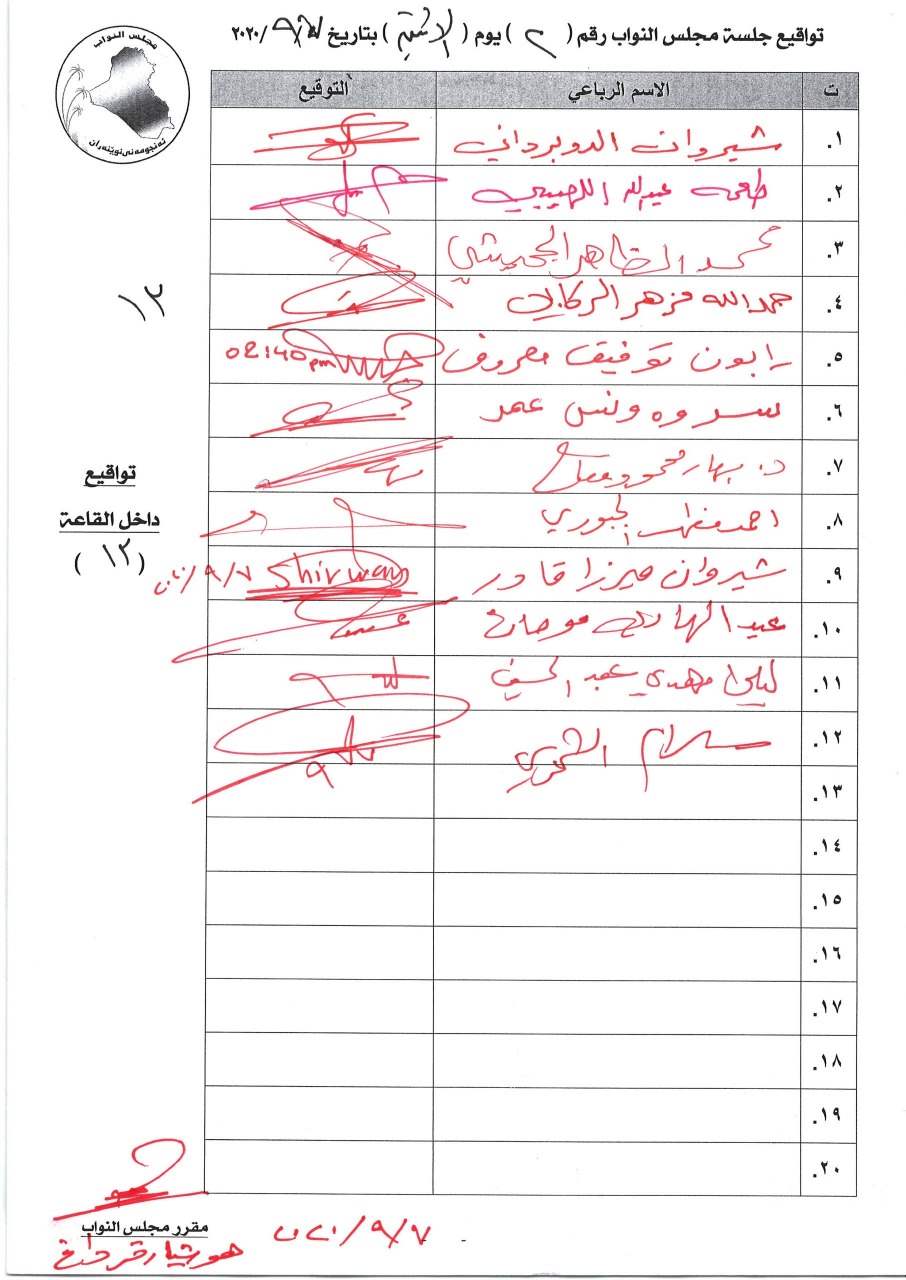 تواقيع جلسة مجلس النواب رقم (٢) يوم (الاثنين) بتاريخ ٢٠٢٠/٩/٧
مجلس النواب
ئه نجومه نى نوێنه ران
ت الاسم الرباعي التوقيع
١. شيروان الدوبرداني
٢. عبدالله اللهيبي
٣. محمد الظاهر الجحيشي
٤. حمدالله مزهر الركابي
٥. رابون توفيق معروف 02:40 pm
٦. سروه ونس عمر
٧. د. بهار محمود
٨. احمد مظهر الجبوري
٩. شيروان ميرزا قادر Shirwan ٢٠٢٠/٩/٧
١٠. عبد الهادي موحان
١١. ليلى مهدي عبد الحسين
١٢. سلام الشمري
١٣.
١٤.
١٥.
١٦.
١٧.
١٨.
١٩.
٢٠.
١٢
تواقيع
داخل القاعة
(١٢)
مقرر مجلس النواب
هوشيار قرداغ
٢٠٢٠/٩/٧